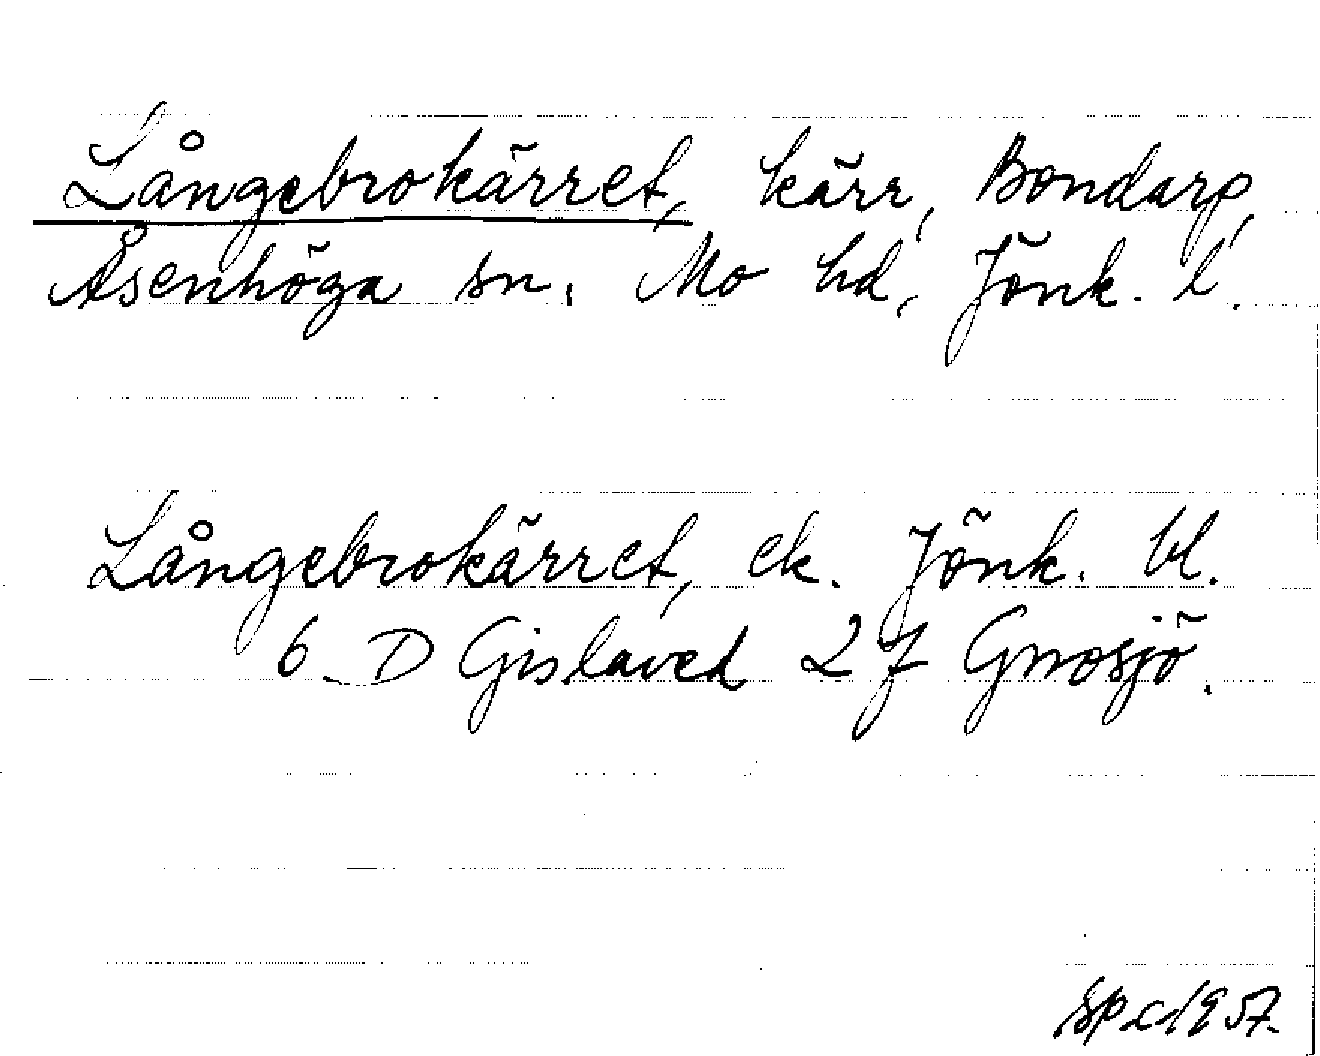 Långebrokärret, kärr, Bondarp,
Åsenhöga sn, Mo hd, Jönk. l.
Långebrokärret, ek. Jönk. bl.
6 D Gislaved 2 J Gnosjö.
1957